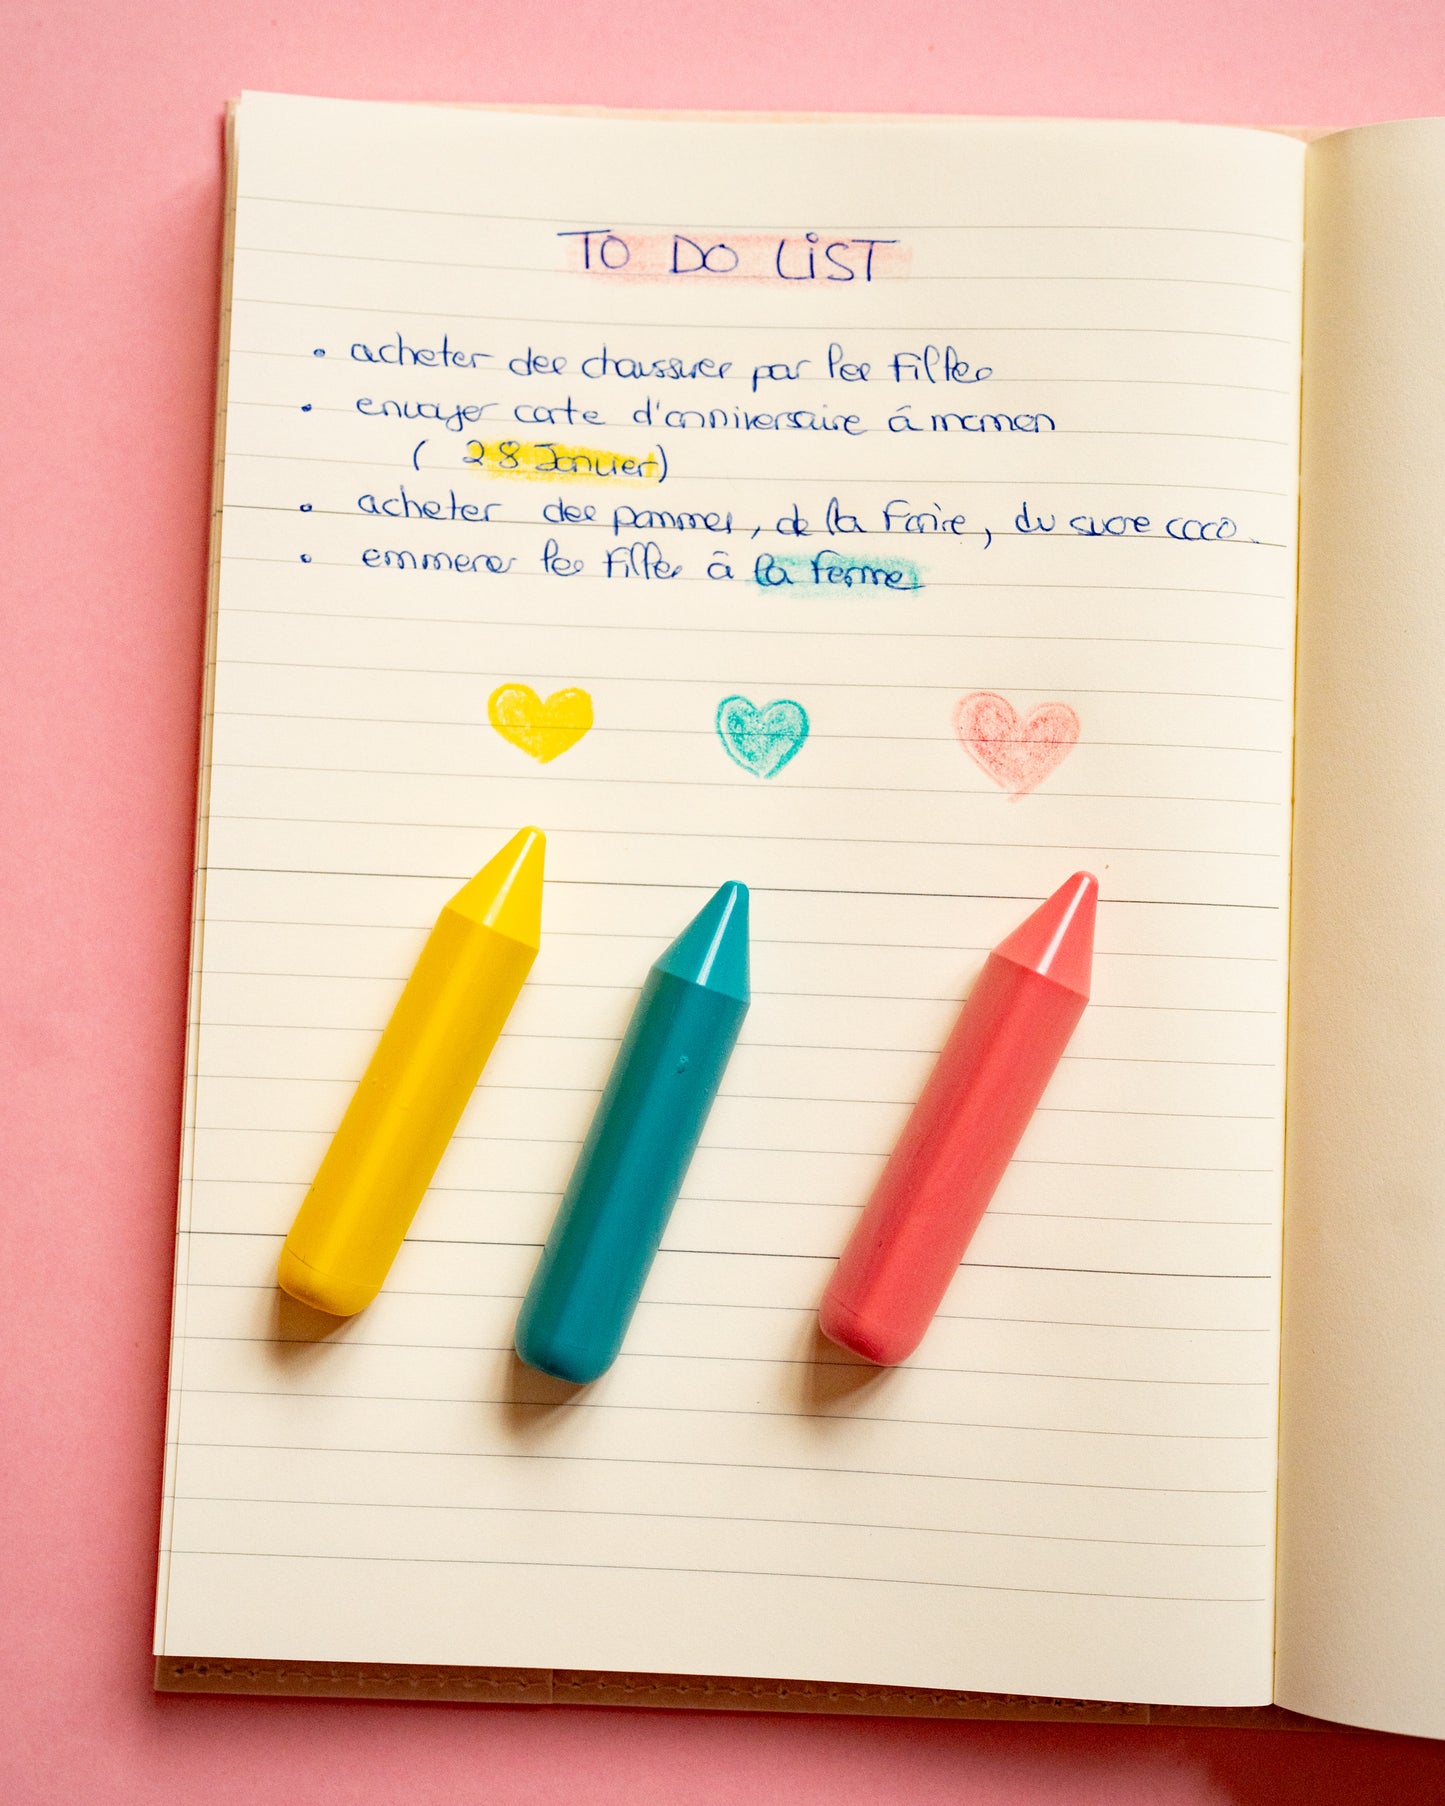 TO DO LiST
• acheter des chaussures par les filles
• envoyer carte d'anniversaire à maman
( 28 Janvier)
• acheter des pommes, de la farine, du sucre coco.
• emmener les filles à la ferme